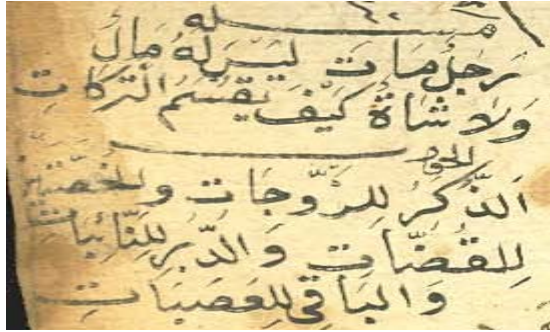 مسئله
رجل مات ليس له مال
ولا شاة كيف يقسم التركات
الجواب
الذكر للزوجات والخصيتين
للقضات والدبر للنائبات
والباقي للعصبات